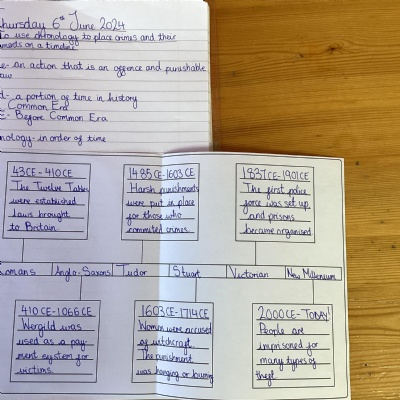 hursday 6th June 2024
To use chronology to place crimes and their
on a timeline
e- an action that is an offence and punishable
law
d- a portion of time in history
Common Era
E- Before Common Era
nology- in order of time
43CE-410CE
The Twelve Tables
were established
laws brought
to Britain
1485CE-1603CE
Harsh punishments
were put in place
for those who
commited crimes.
1837CE-1901CE
The first police
force was set up
and prisons
became organised
omans
Anglo-Saxons
Tudor
Stuart
Victorian
New Millenium
410CE-1066CE
Wergild was
used as a pay-
ment system for
victims.
1603CE-1714CE
Women were accused
of witchcraft.
The punishment
was hanging or burning
2000CE-TODAY
People are
imprisoned for
many types of
theft